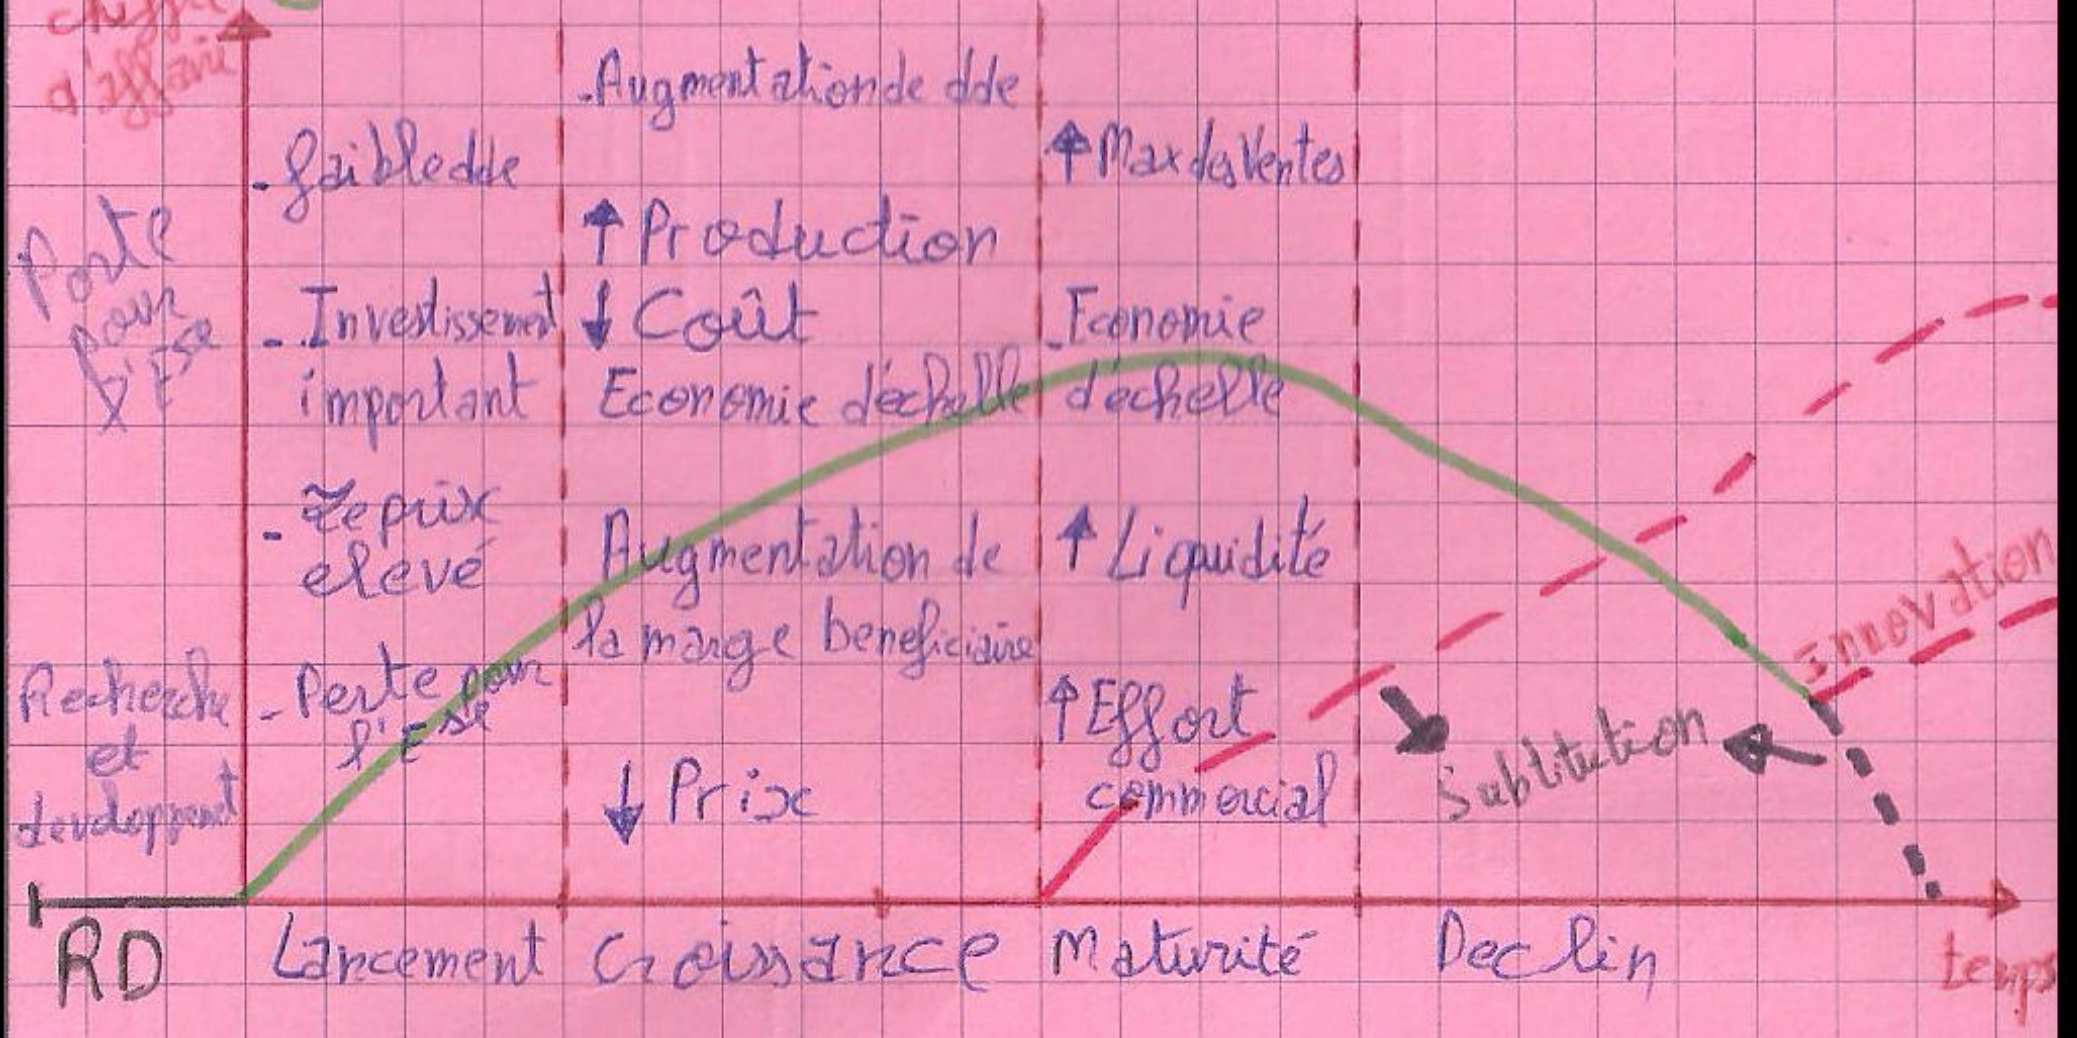 chiffre
d'affaire
Perte
pour
l'Ese
Recherche
et
developpement
RD
- faible dde
- Investissement
important
- Le prix
elevé
- Perte pour
l'Ese
Lancement
- Augmentation de dde
↑ Production
↓ Coût
Economie d'échelle
Augmentation de
la marge beneficiaire
↓ Prix
Croissance
↑ Max des Ventes
- Economie
d'échelle
↑ Liquidité
↑ Effort
commercial
Maturité
Innovation
Subtitution
Declin
temps